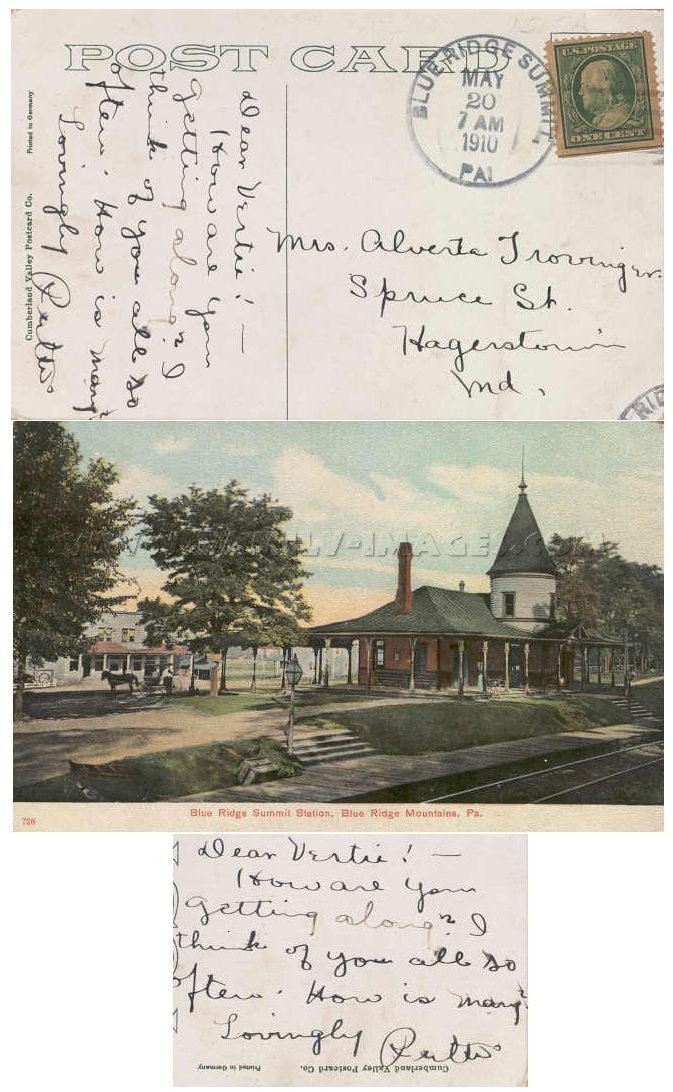 POST CARD
BLUE RIDGE SUMMIT,
MAY
20
7 AM
1910
PA.
U.S. POSTAGE
ONE CENT
Printed in Germany
Cumberland Valley Postcard Co.
Dear Vertie! —
How are you
getting along? I
think of you all so
often. How is mary?
Lovingly
Mrs. Alverta Trovinger
Spruce St.
Hagerstown
Md.
Blue Ridge Summit Station, Blue Ridge Mountains, Pa.
728
Dear Vertie! —
How are you
getting along? I
think of you all so
often. How is mary?
Lovingly
Cumberland Valley Postcard Co.
Printed in Germany